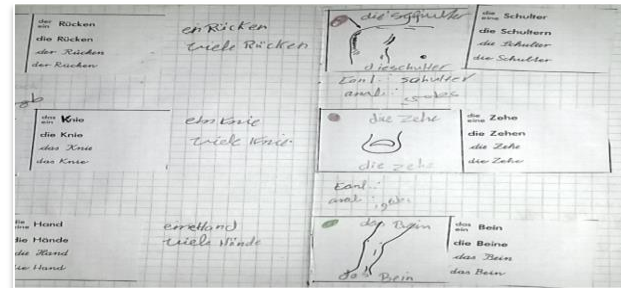 der
ein Rücken
die Rücken
der Rücken
der Rücken
ein Rücken
viele Rücken
das
ein Knie
die Knie
das Knie
das Knie
ein Knie
viele Knie
die
eine Hand
die Hände
die Hand
die Hand
eine Hand
viele Hände
die Schulter
die Schulter
die
eine Schulter
die Schultern
die Schulter
die Schulter
schulter
die Zehe
die Zehe
die
eine Zehe
die Zehen
die Zehe
die Zehe
das Bein
das Bein
das
ein Bein
die Beine
das Bein
das Bein